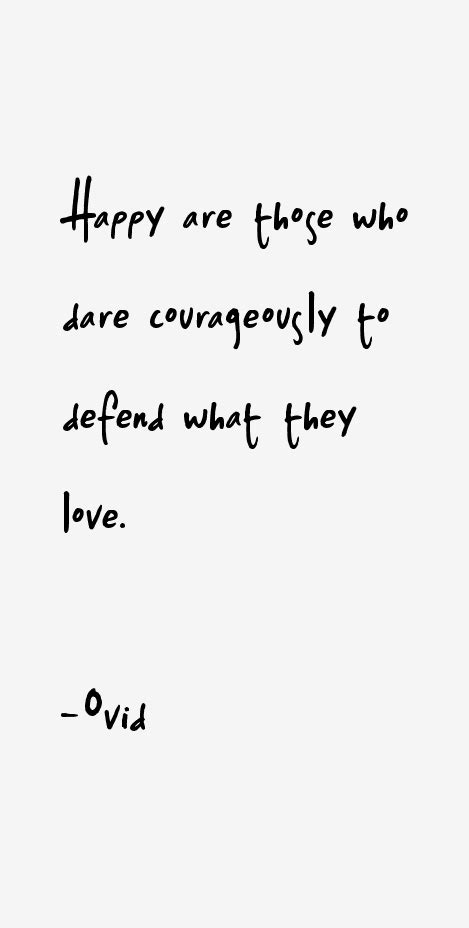 Happy are those who
dare courageously to
defend what they
love.
-Ovid